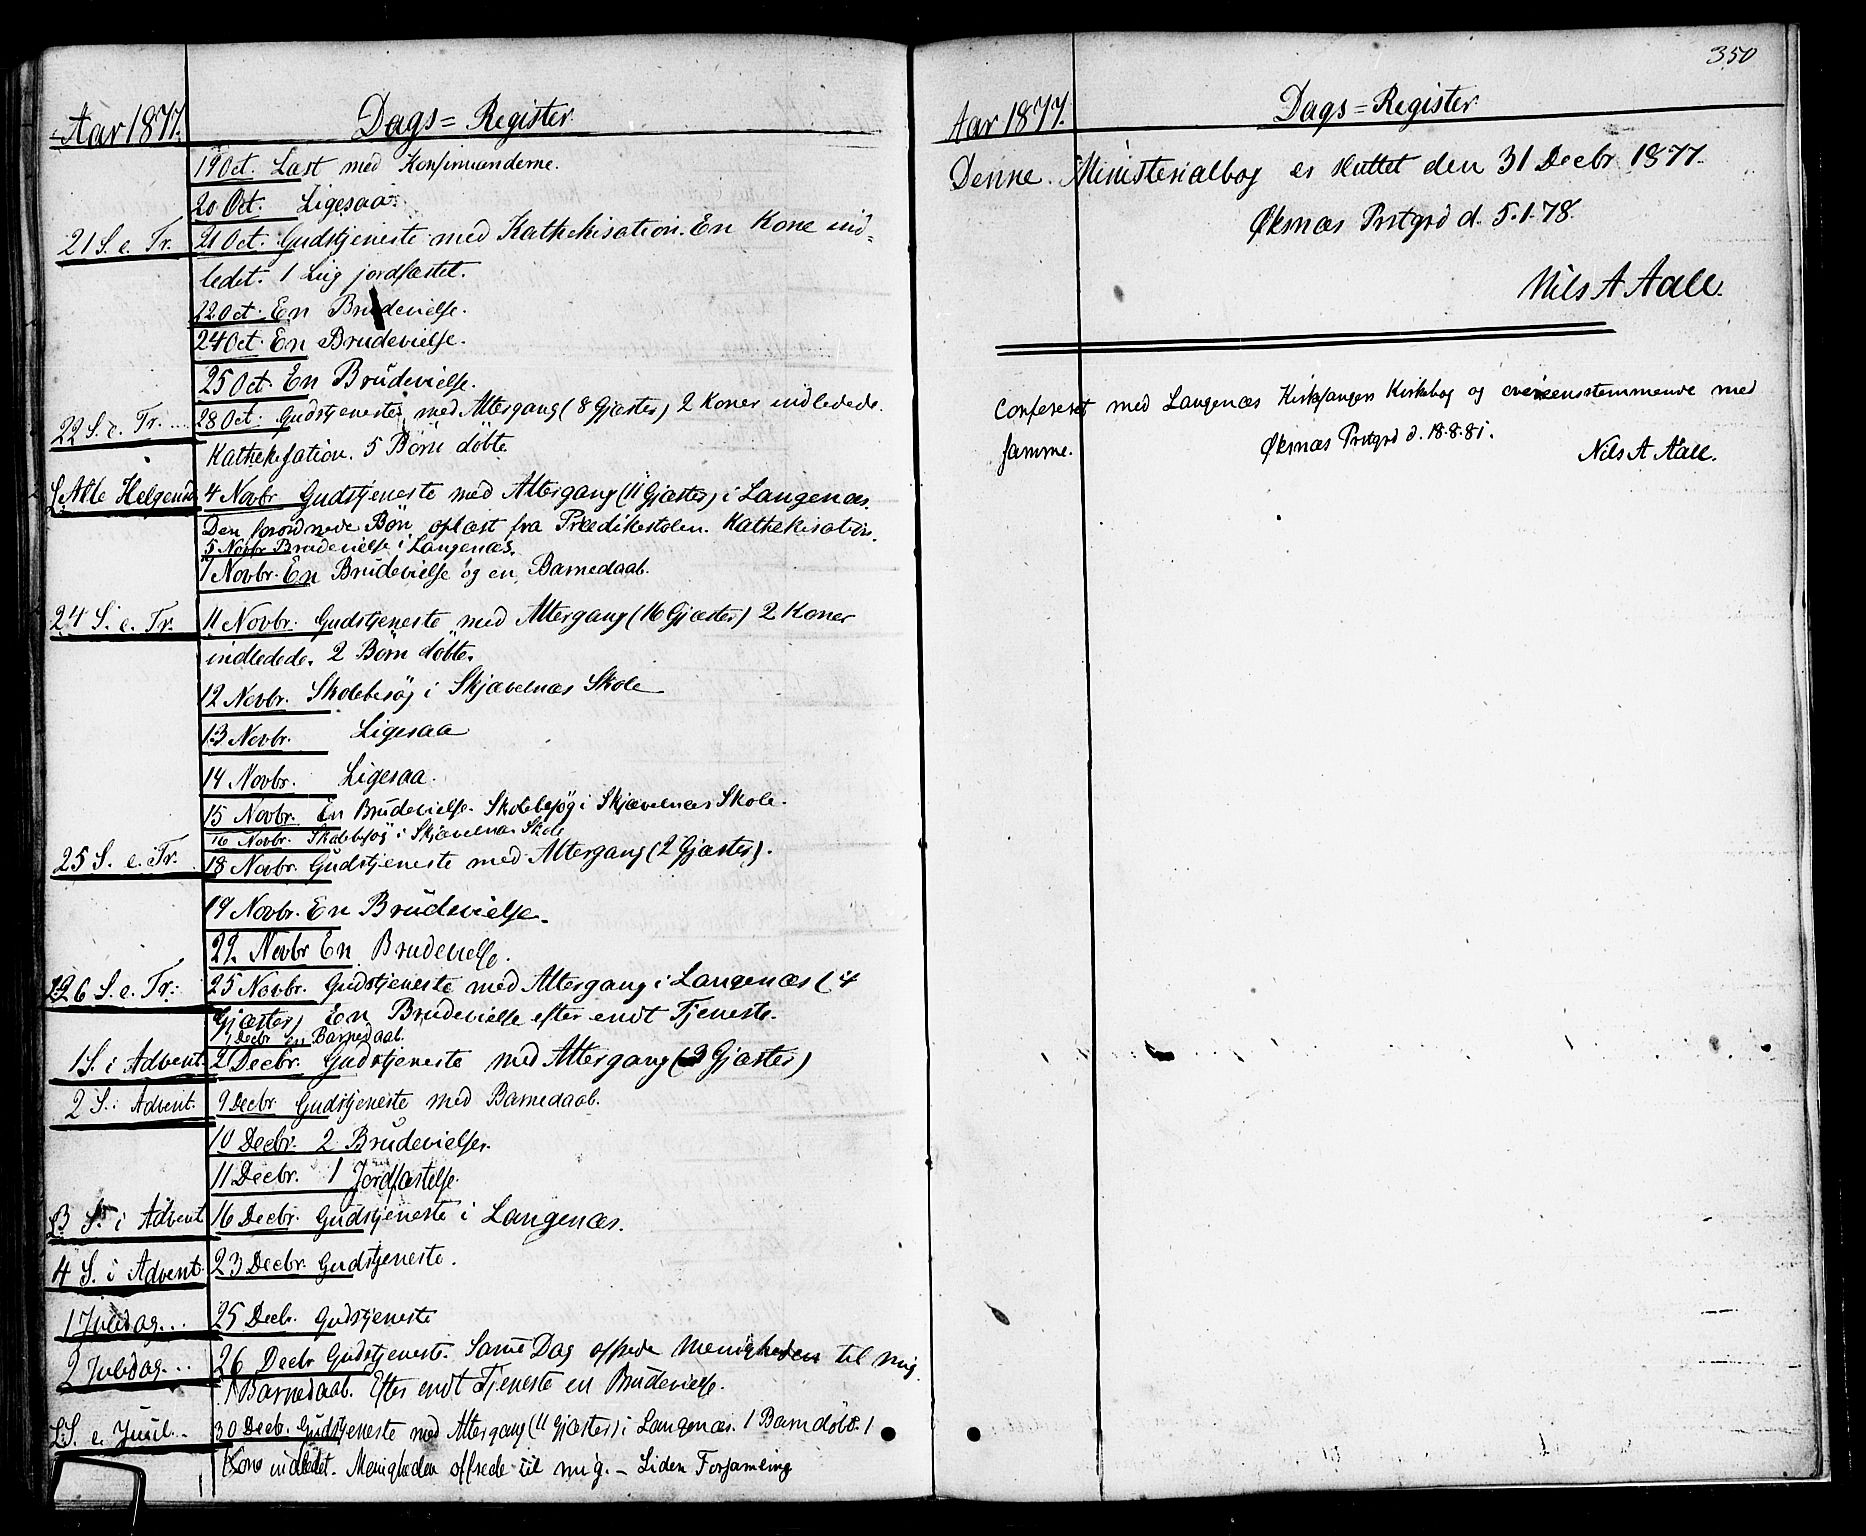 Aar 1877.
Dags=Register
19 Oct. Læst med Konfirmanderne.
20 Oct. Ligesaa.
21 S. e. Tr. 21 Oct. Gudstjeneste med Kathekisation. En Kone ind-
ledet. 1 Liig jordfæstet.
22 Oct. En Brudevielse.
24 Oct. En Brudevielse.
25 Oct. En Brudevielse.
22 S. e. Tr. 28 Oct. Gudstjeneste med Altergang (8 Gjæster) 2 Koner indledede.
Kathekisation. 5 Børn døbte.
S. Alle Helgensd. 4 Novbr. Gudstjeneste med Altergang (11 Gjæster) i Langenæs.
Den forordnede Bøn oplæst fra Prædikestolen. Kathekisation.
5 Novbr. Brudevielse i Langenæs.
7 Novbr. En Brudevielse og en Barnedaab.
24 S. e. Tr. 11 Novbr. Gudstjeneste med Altergang (16 Gjæster) 2 Koner
indledede. 2 Børn døbte.
12 Novbr. Skolebesøg i Skjævelnæs Skole
13 Novbr. Ligesaa
14 Novbr. Ligesaa.
15 Novbr. En Brudevielse. Skolebesøg i Skjævelnæs Skole.
16 Novbr. Skolebesøg i Skjævelnæs Skole
25 S. e. Tr. 18 Novbr. Gudstjeneste med Altergang (2 Gjæster).
19 Novbr. En Brudevielse.
22 Novbr En Brudevielse.
26 S. e. Tr. 25 Novbr. Gudstjeneste med Altergang i Langenæs (4
Gjæster) En Brudevielse efter endt Tjeneste.
1 Decbr en Barnedaab.
1 S. i Advent 2 Decbr. Gudstjeneste med Altergang (3 Gjæster)
2 S. i Advent. 9 Decbr Gudstjeneste med Barnedaab.
10 Decbr. 2 Brudevielser.
11 Decbr. 1 Jordfæstelse.
3 S. i Advent 16 Decbr. Gudstjeneste i Langenæs.
4 S. i Advent. 23 Decbr. Gudstjeneste.
1 Juledag... 25 Decb. Gudstjeneste
2 Juledag... 26 Decbr Gudstjeneste. Samme Dag offrede Menigheden til mig.
1 Barnedaab. Efter endt Tjeneste en Brudevielse.
S. e. Juul.. 30 Decb. Gudstjeneste med Altergang (11 Gjæster) i Langenæs. 1 Barn døbt. 1
Kone indledet. Menigheden offrede til mig. - Liden Forsamling
350
Aar 1877.
Dags=Register
Denne Ministerialbog er sluttet den 31 Decbr 1877.
Øksnæs Prstgrd d. 5.1.78.
Nils A Aall.
Confereret med Langenæs Kirkesangers Kirkebog og overeensstemmende med
samme.
Øksnæs Prstgrd d. 18.8.81.
Nils A Aall.